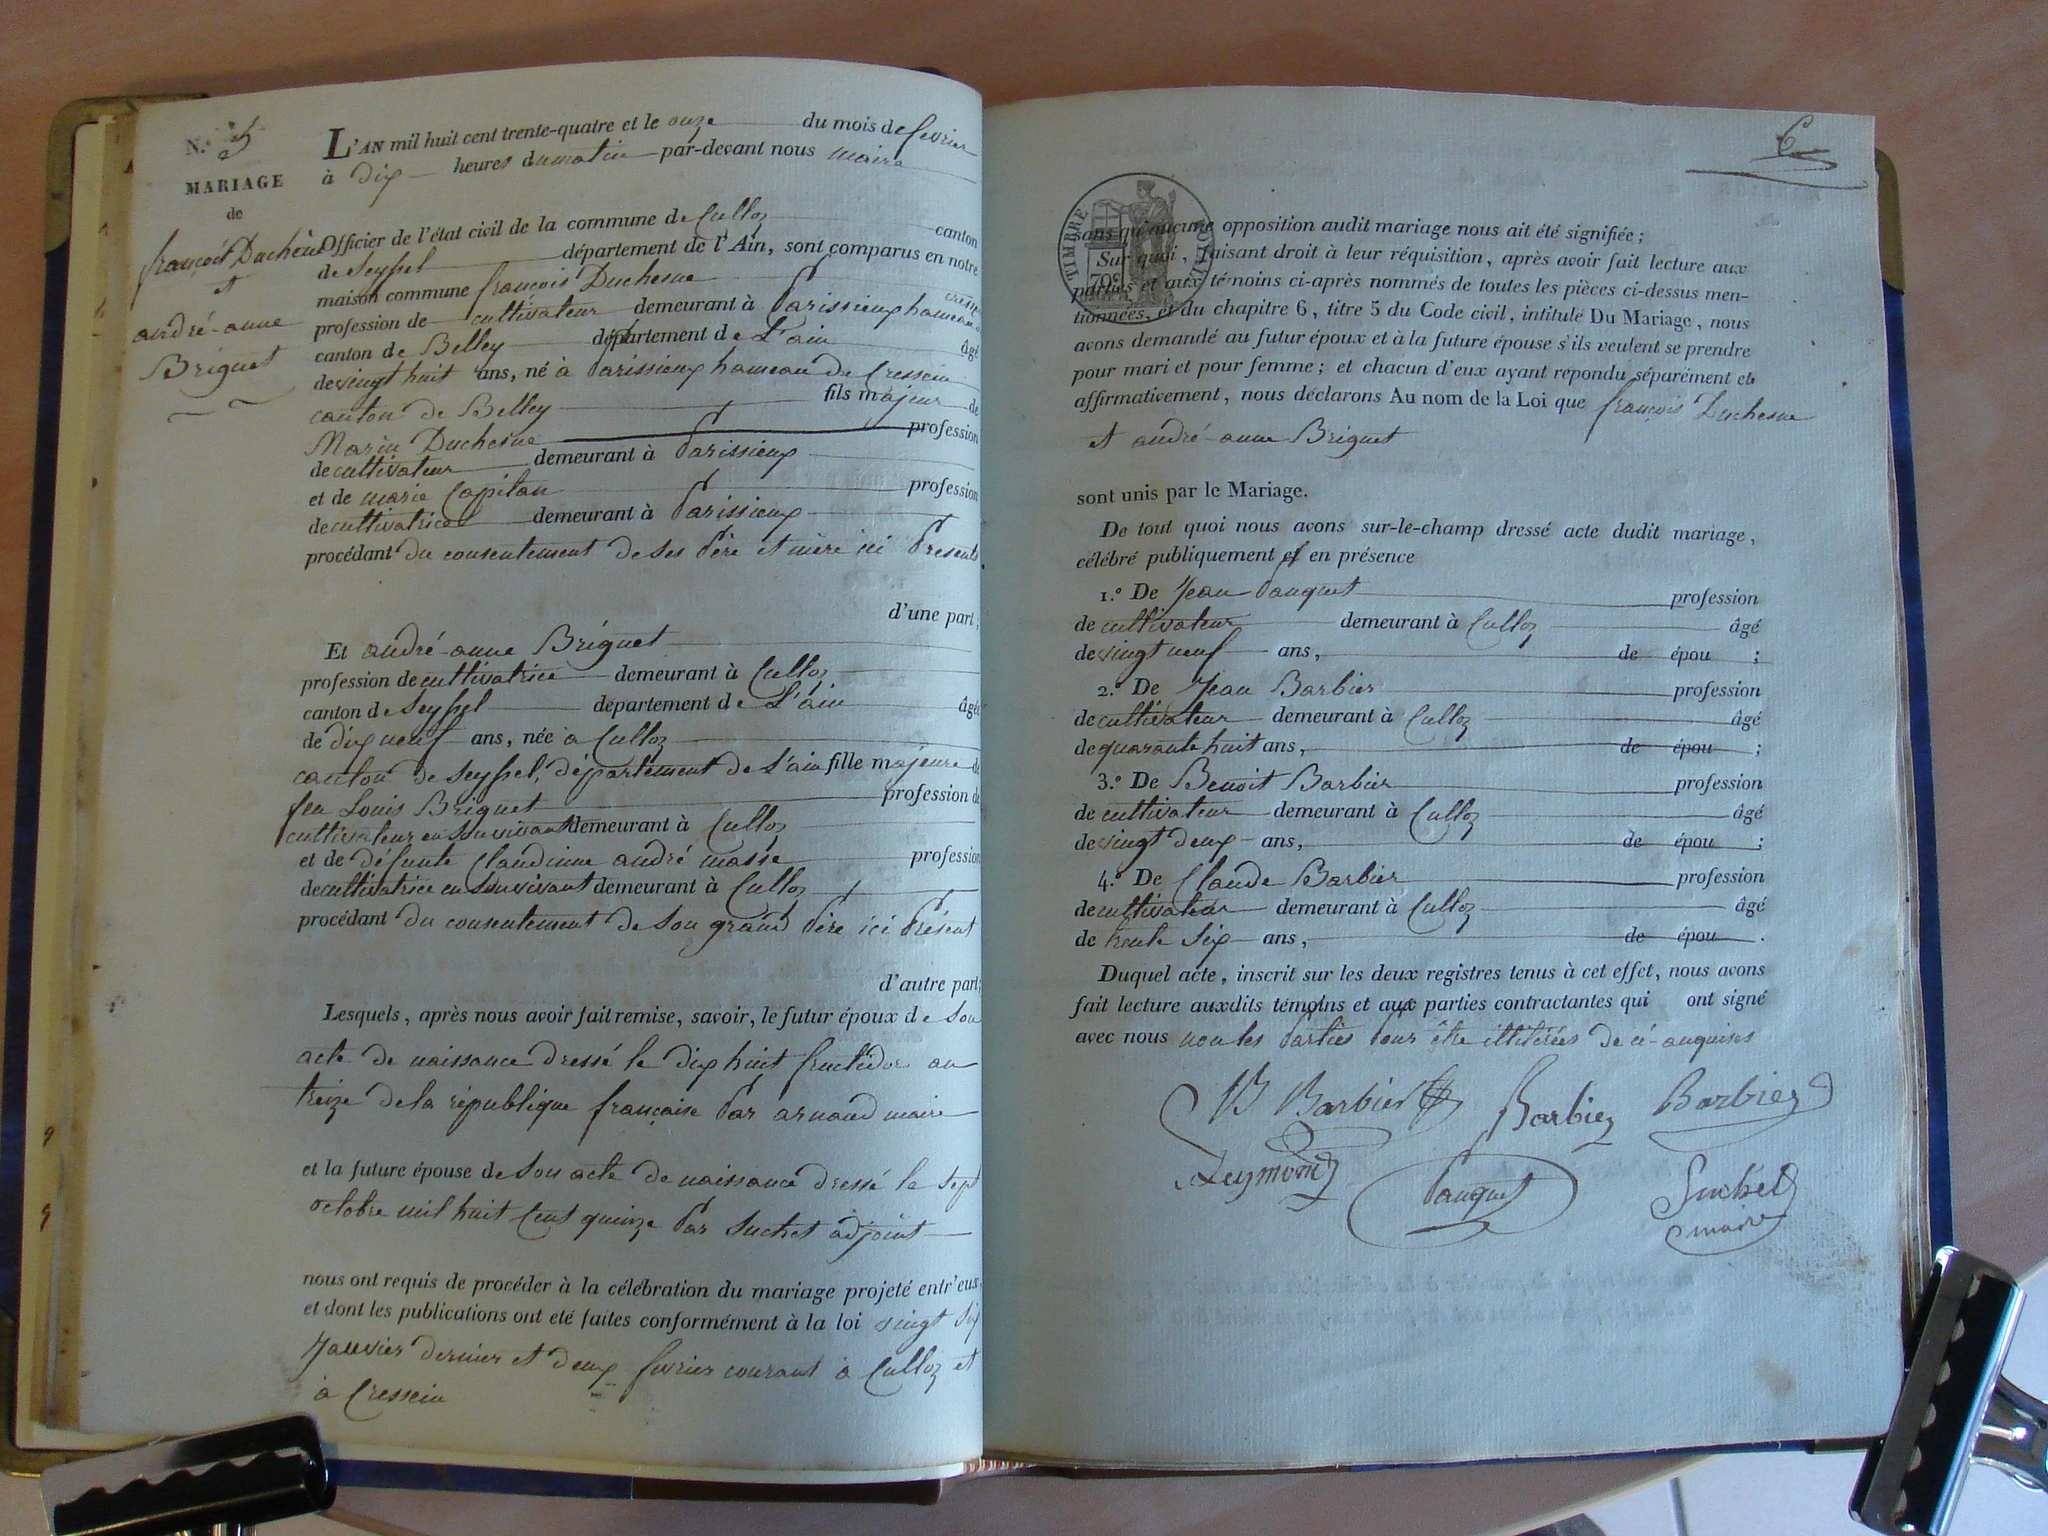 N.° 5
MARIAGE
de
françois Duchêne
et
andré-anne
Briguet
L'AN mil huit cent trente-quatre et le onze du mois de fevrier
à dix heures du matin par-devant nous maire
Officier de l'état civil de la commune de Culloz canton
de Seyssel département de l'Ain, sont comparus en notre
maison commune françois Duchesne
profession de cultivateur demeurant à Parissieux hameau de cressin
canton de Belley département de L'ain âgé
de vingt huit ans, né à Parissieux hameau de Cressein
canton de Belley fils majeur de
Marin Duchesne profession
de cultivateur demeurant à Parissieux
et de marie Capitan profession
de cultivatrice demeurant à Parissieux
procédant du consentement de ses Père et mère ici Presents
d'une part,
Et andré-anne Briguet
profession de cultivatrice demeurant à Culloz
canton de Seyssel département de L'ain âgée
de dix neuf ans, née à Culloz
canton de Seyssel, département de L'ain fille majeure de
feu Louis Briguet profession de
cultivateur en son vivant demeurant à Culloz
et de défunte Claudinne andré masse profession
de cultivatrice en son vivant demeurant à Culloz
procédant du consentement de son grand Père ici Présent
d'autre part;
Lesquels, après nous avoir fait remise, savoir, le futur époux de son
acte de naissance dressé le dix huit fructidor an
treize de la république française Par arnaud maire
et la future épouse de son acte de naissance dressé le sept
octobre mil huit cent quinze Par Suchet adjoint
nous ont requis de procéder à la célébration du mariage projeté entr'eux,
et dont les publications ont eté faites conformément à la loi vingt six
Janvier dernier et deux fevrier courant à Culloz et
à Cressein
6
TIMBRE ROYAL
70c
sans qu'aucune opposition audit mariage nous ait été signifiée;
Sur quoi, faisant droit à leur réquisition, après avoir fait lecture aux
parties et aux témoins ci-après nommés de toutes les pièces ci-dessus men-
tionnées, et du chapitre 6, titre 5 du Code civil, intitulé Du Mariage, nous
avons demandé au futur époux et à la future épouse s'ils veulent se prendre
pour mari et pour femme; et chacun d'eux ayant repondu séparément et
affirmativement, nous déclarons Au nom de la Loi que françois Duchesne
et andré-anne Briguet
sont unis par le Mariage.
De tout quoi nous avons sur-le-champ dressé acte dudit mariage,
célébré publiquement et en présence
1.° De Jean Pauquet profession
de cultivateur demeurant à Culloz âgé
de vingt neuf ans, de épou ;
2.° De Jean Barbier profession
de cultivateur demeurant à Culloz âgé
de quarante huit ans, de épou ;
3.° De Benoit Barbier profession
de cultivateur demeurant à Culloz âgé
de vingt deux ans, de épou ;
4.° De Claude Barbier profession
de cultivateur demeurant à Culloz âgé
de trente six ans, de épou .
Duquel acte, inscrit sur les deux registres tenus à cet effet, nous avons
fait lecture auxdits témoins et aux parties contractantes qui ont signé
avec nous non les Parties Pour être illitérées de ce anquises
B Barbier Barbier Barbier
Reymond Pauquet Suchet
maire